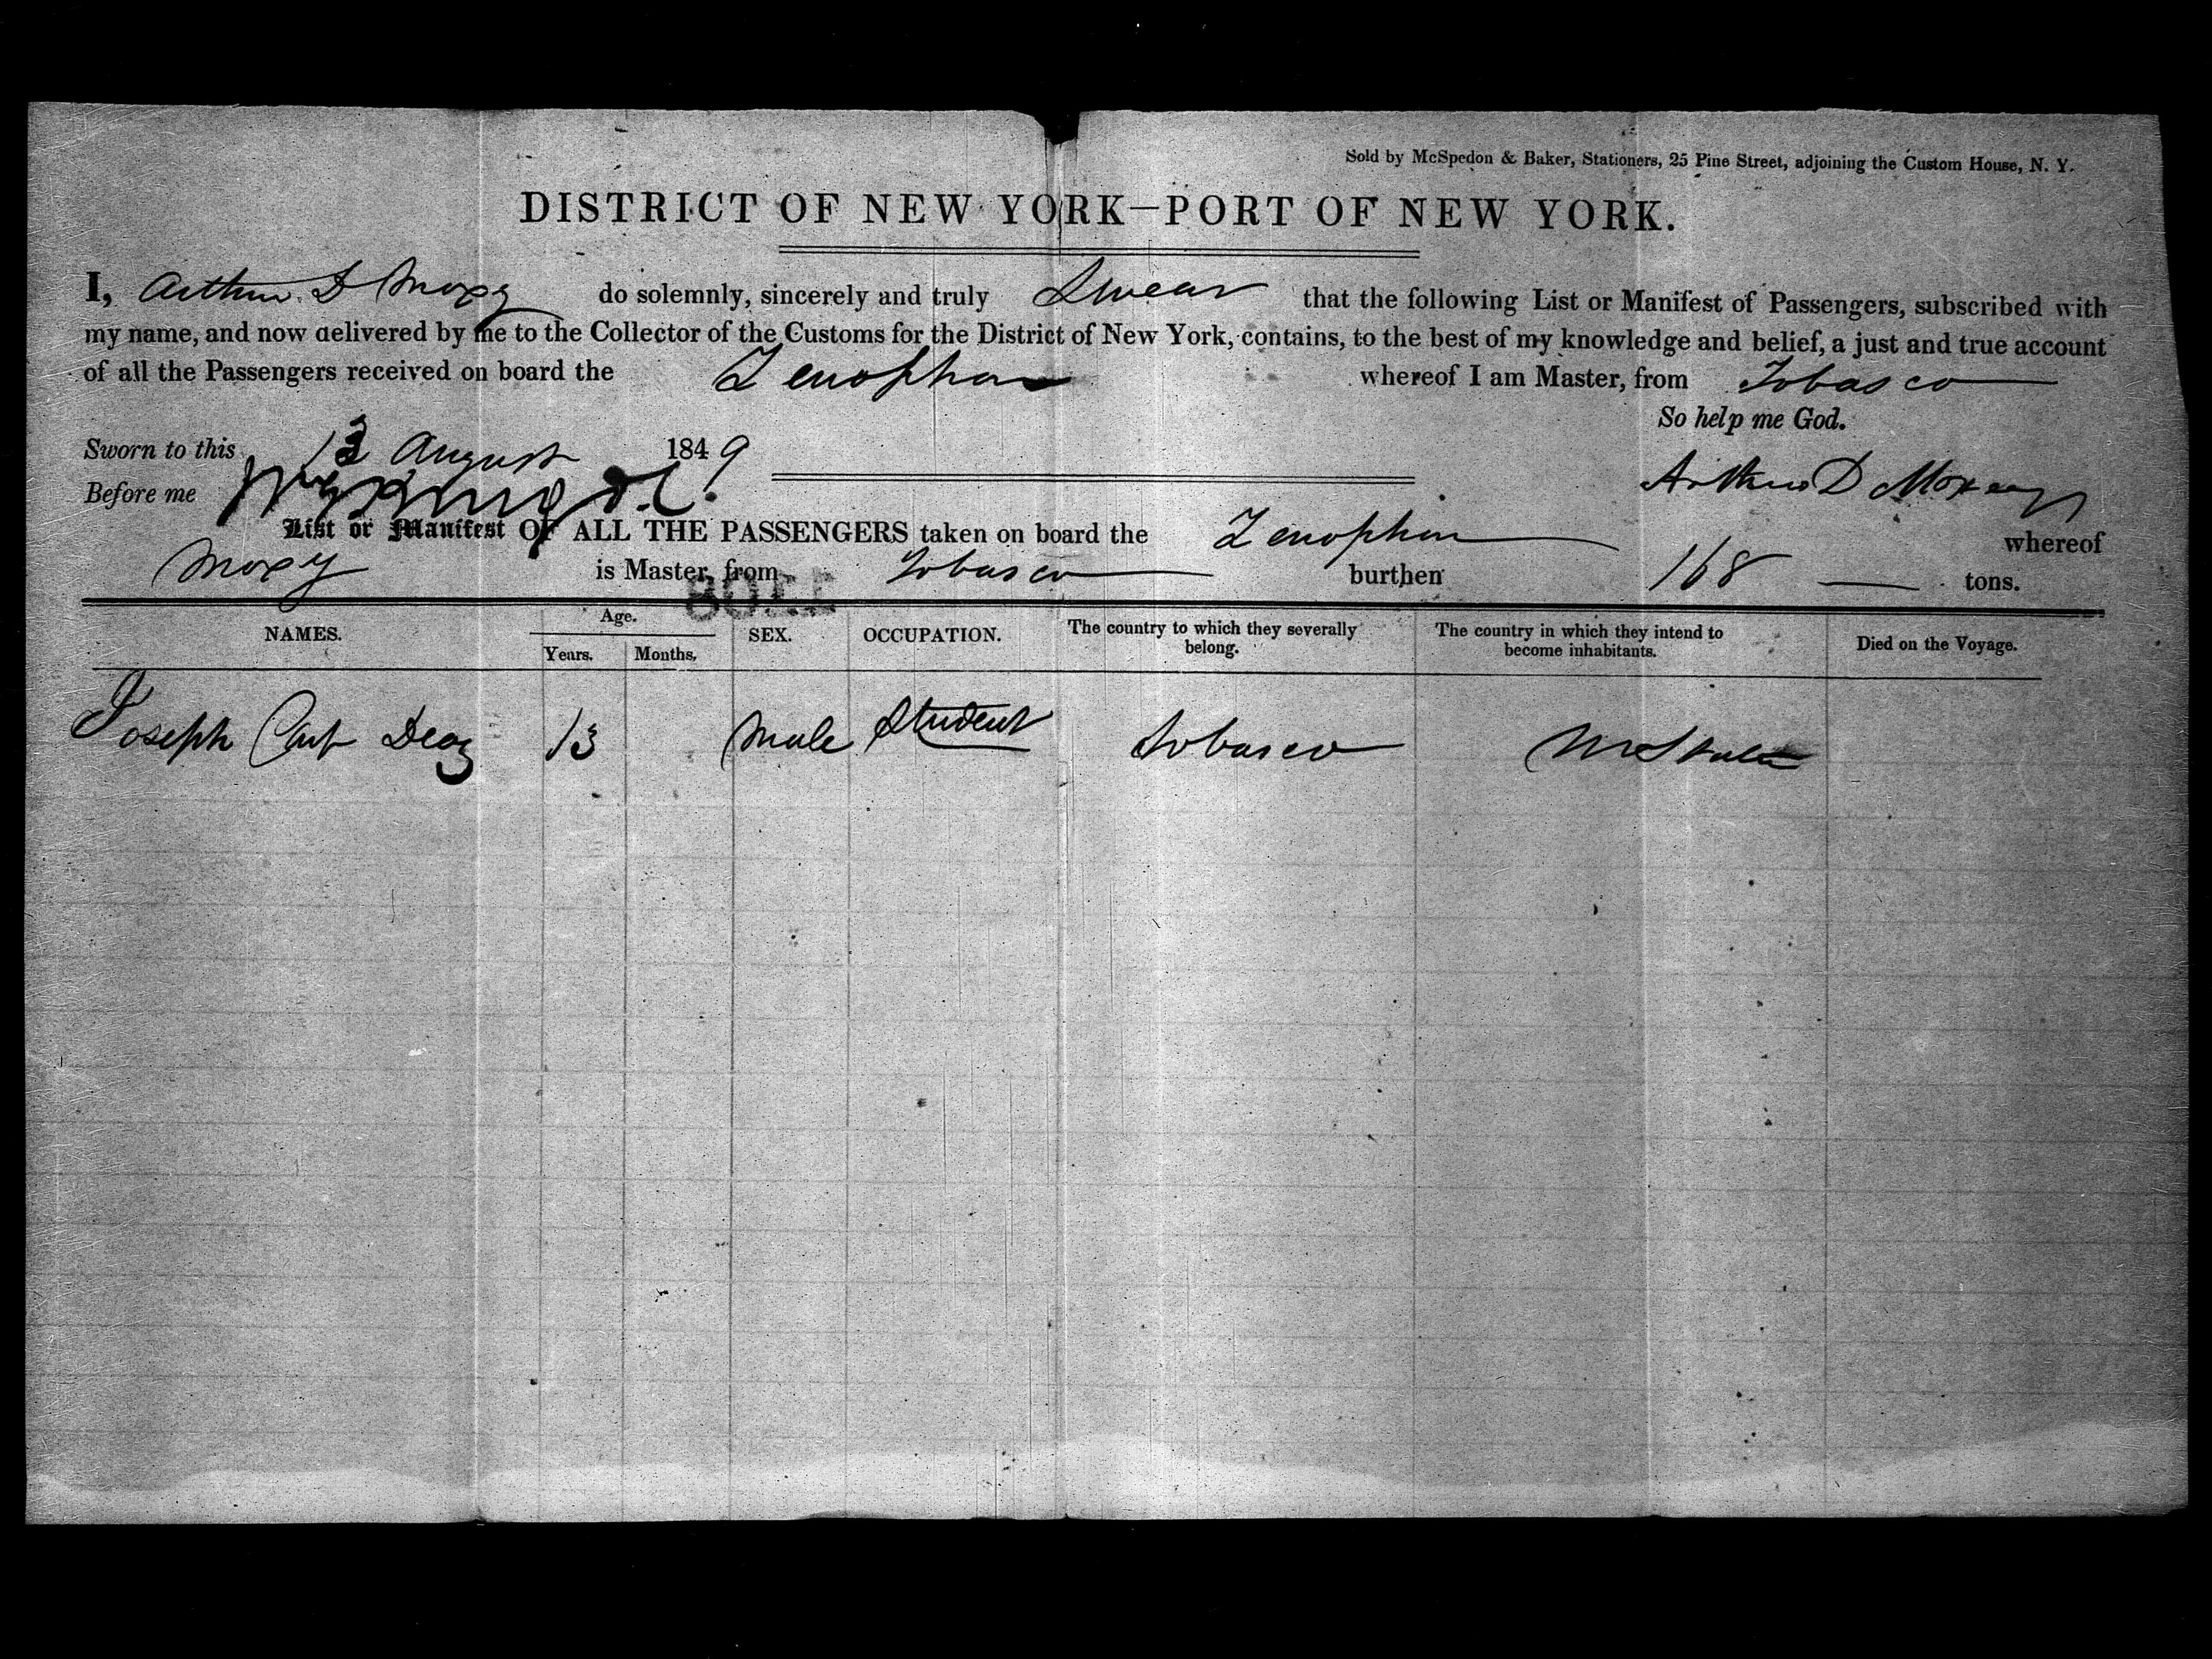 Sold by McSpedon & Baker, Stationers, 25 Pine Street, adjoining the Custom House, N. Y.
DISTRICT OF NEW YORK—PORT OF NEW YORK.
I, Arthur D Moxy do solemnly, sincerely and truly Swear that the following List or Manifest of Passengers, subscribed with
my name, and now delivered by me to the Collector of the Customs for the District of New York, contains, to the best of my knowledge and belief, a just and true account
of all the Passengers received on board the Zenophon whereof I am Master, from Tobasco
So help me God.
Sworn to this August 1849
Before me Arthur D Moxey
List or Manifest OF ALL THE PASSENGERS taken on board the Zenophon whereof
Moxy is Master, from Tobasco burthen 168 tons.
NAMES. Age. Years. Months. SEX. OCCUPATION. The country to which they severally belong. The country in which they intend to become inhabitants. Died on the Voyage.
Joseph 13 Male Student Tobasco